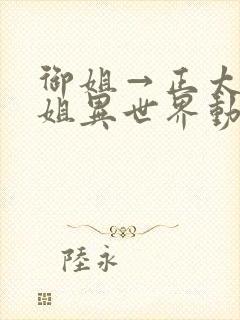 御姐→正太
姐異世界動
陸永